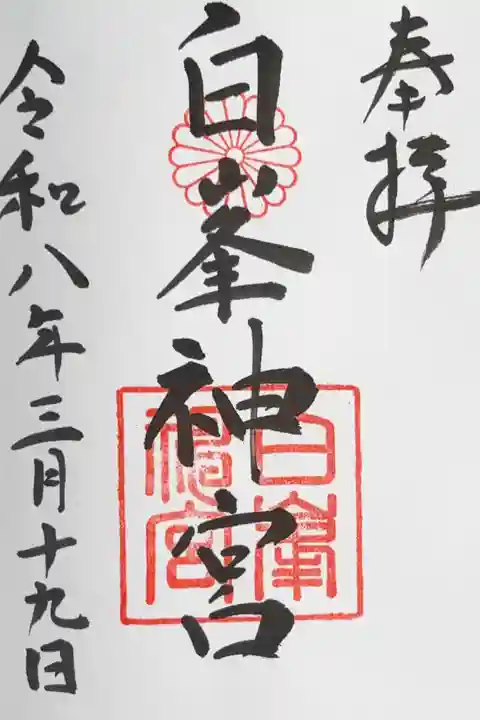 奉拝
白峯神宮
白峯神宮
令和八年三月十九日